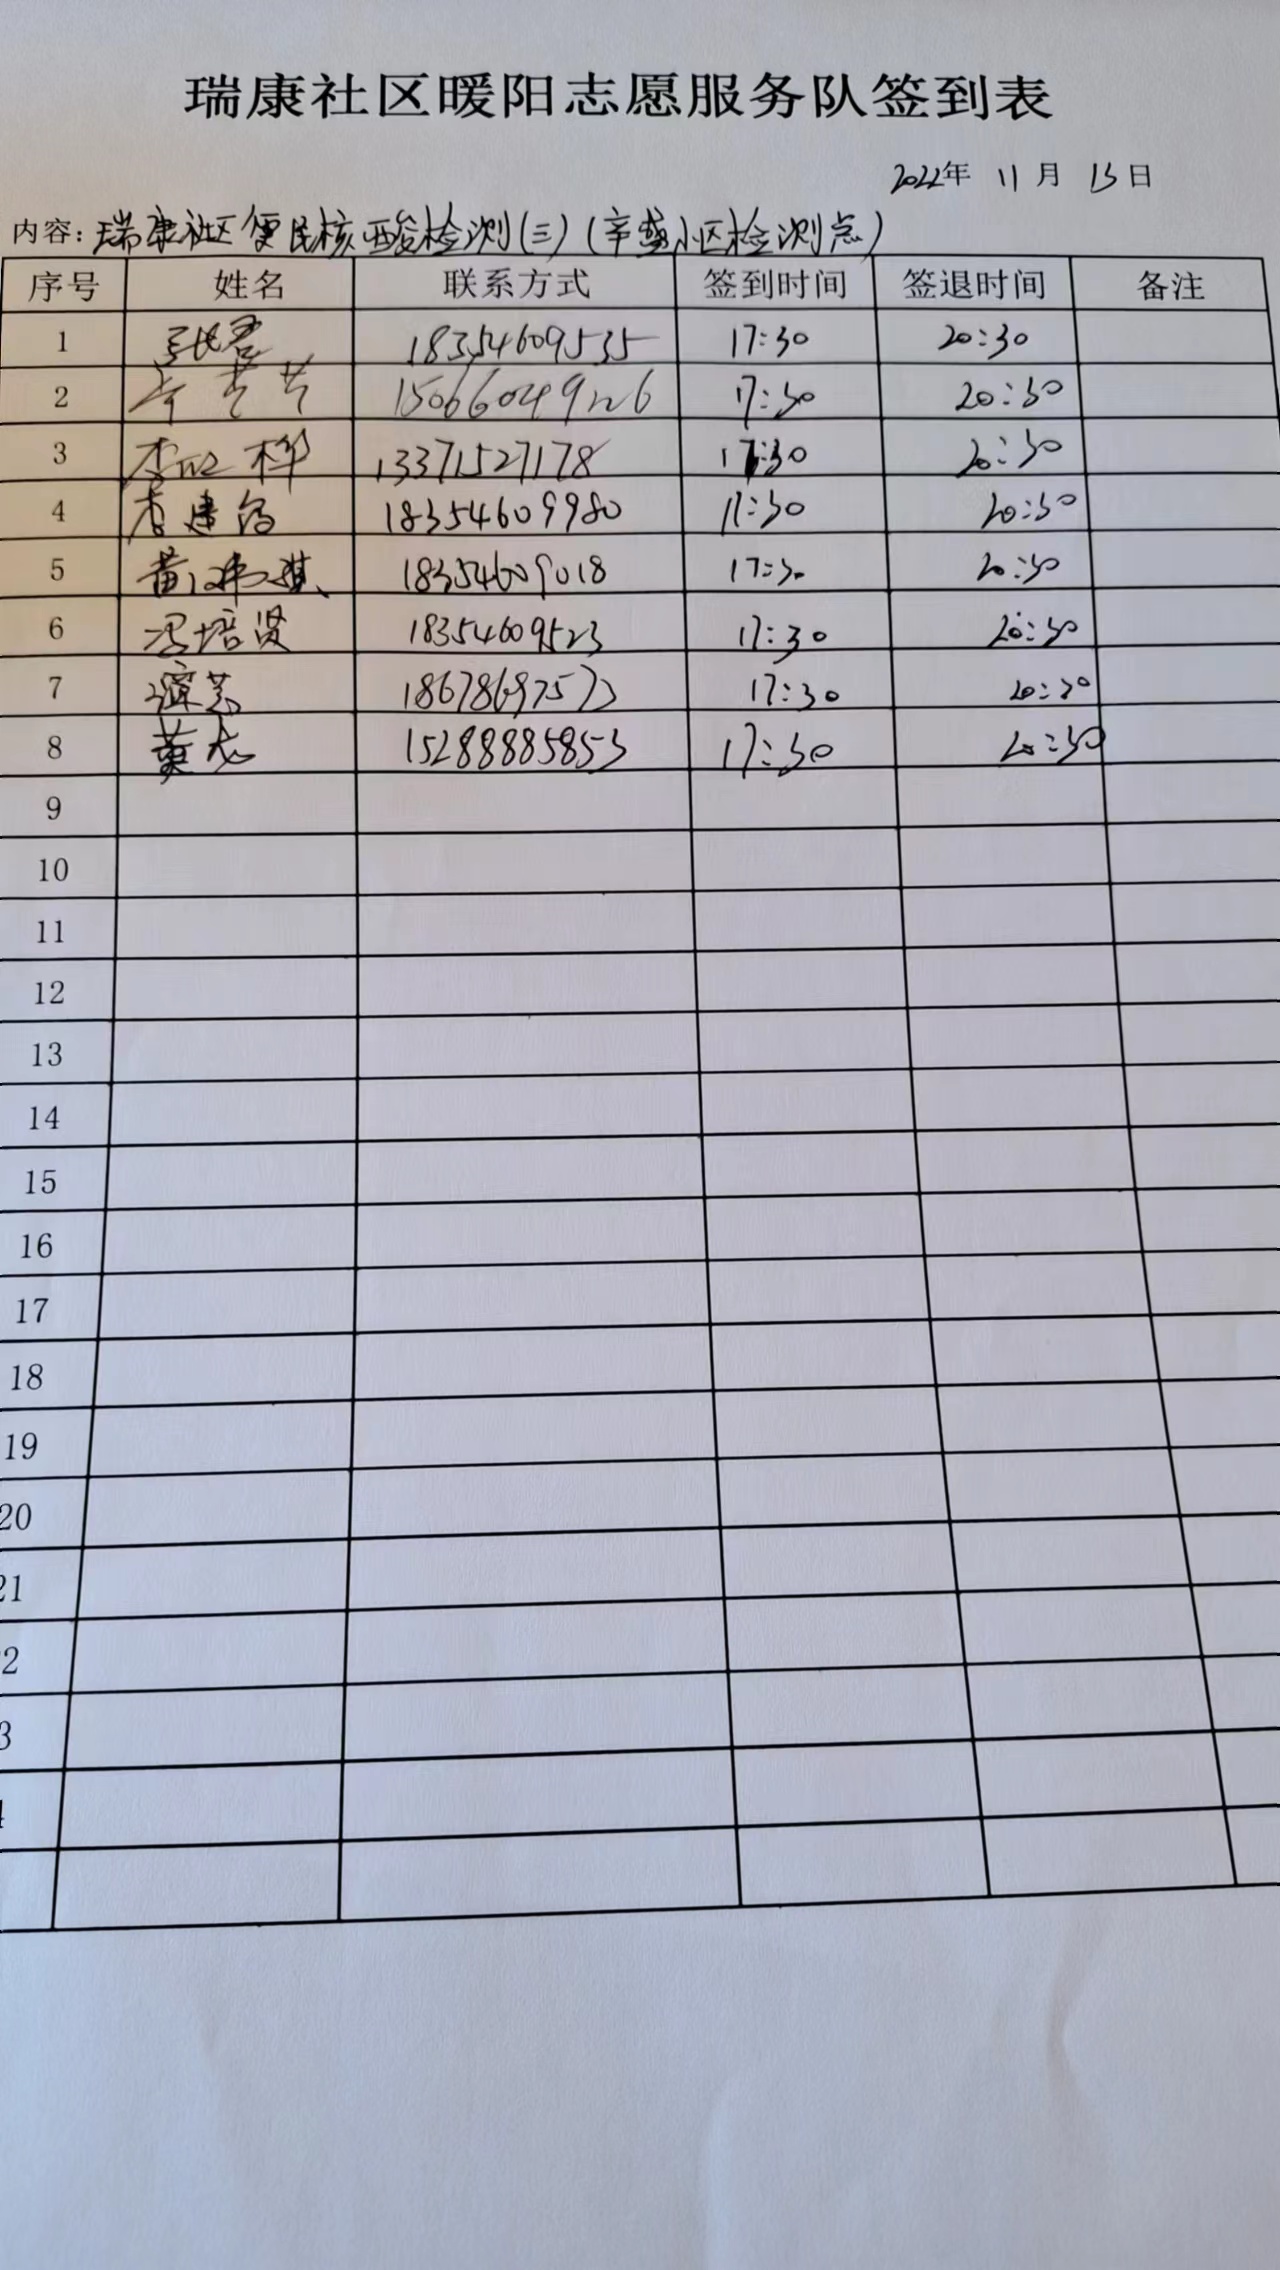 瑞康社区暖阳志愿服务队签到表
2022年 11月 13日
内容：瑞康社区便民核酸检测(三)(辛盛小区检测点)
序号 姓名 联系方式 签到时间 签退时间 备注
1 张君 18354609535 17:30 20:30
2 15066049226 17:30 20:30
3 李 13371527178 17:30 20:30
4 李建 18354609980 17:30 20:30
5 黄 18354609018 17:30 20:30
6 冯培贤 18354609523 17:30 20:30
7 18678697573 17:30 20:30
8 黄 15288885853 17:30 20:30
9
10
11
12
13
14
15
16
17
18
19
20
21
2
3
4